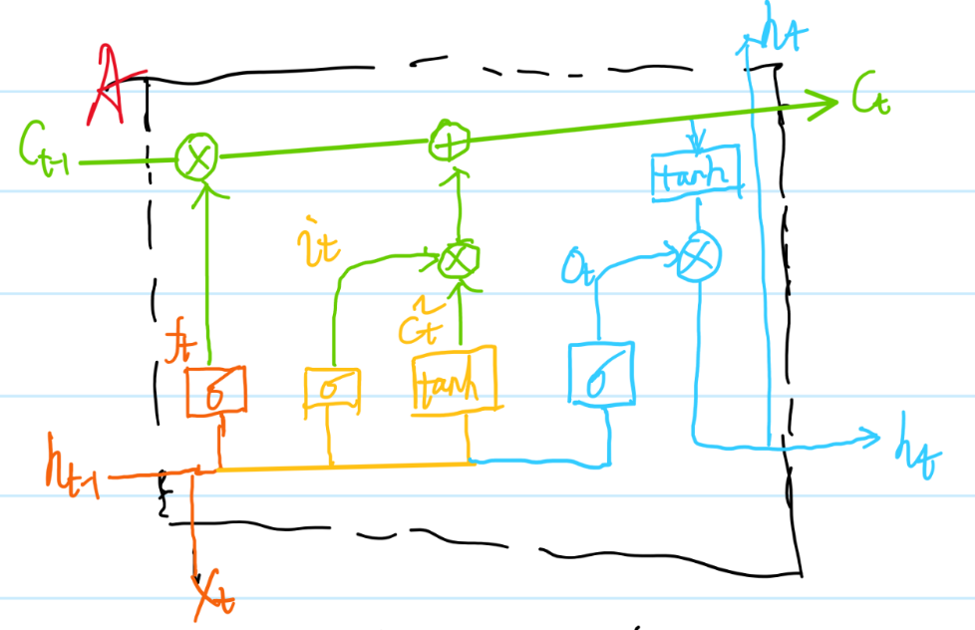 h_t
A
C_t
C_{t-1}
tanh
i_t
o_t
C̃_t
f_t
σ
σ
tanh
σ
h_{t-1}
h_t
x_t